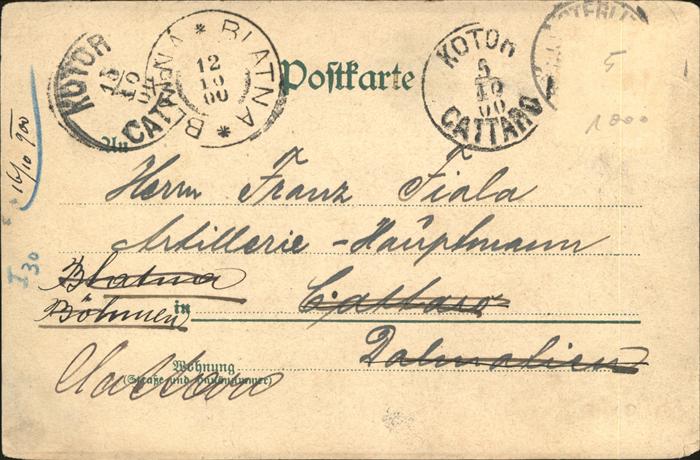 KOTOR
15
10
00
CATTARO
* BLATNA * BLATNA
12
10
00
Postkarte
KOTOR
6
10
00
CATTARO
5
1800
16/10 900
An
Herrn Franz Fiala
Artillerie-Hauptmann
I 30
Blatna
Cattaro
Böhmen
in
Dalmatien
Wohnung
(Straße und Hausnummer)
Cattaro